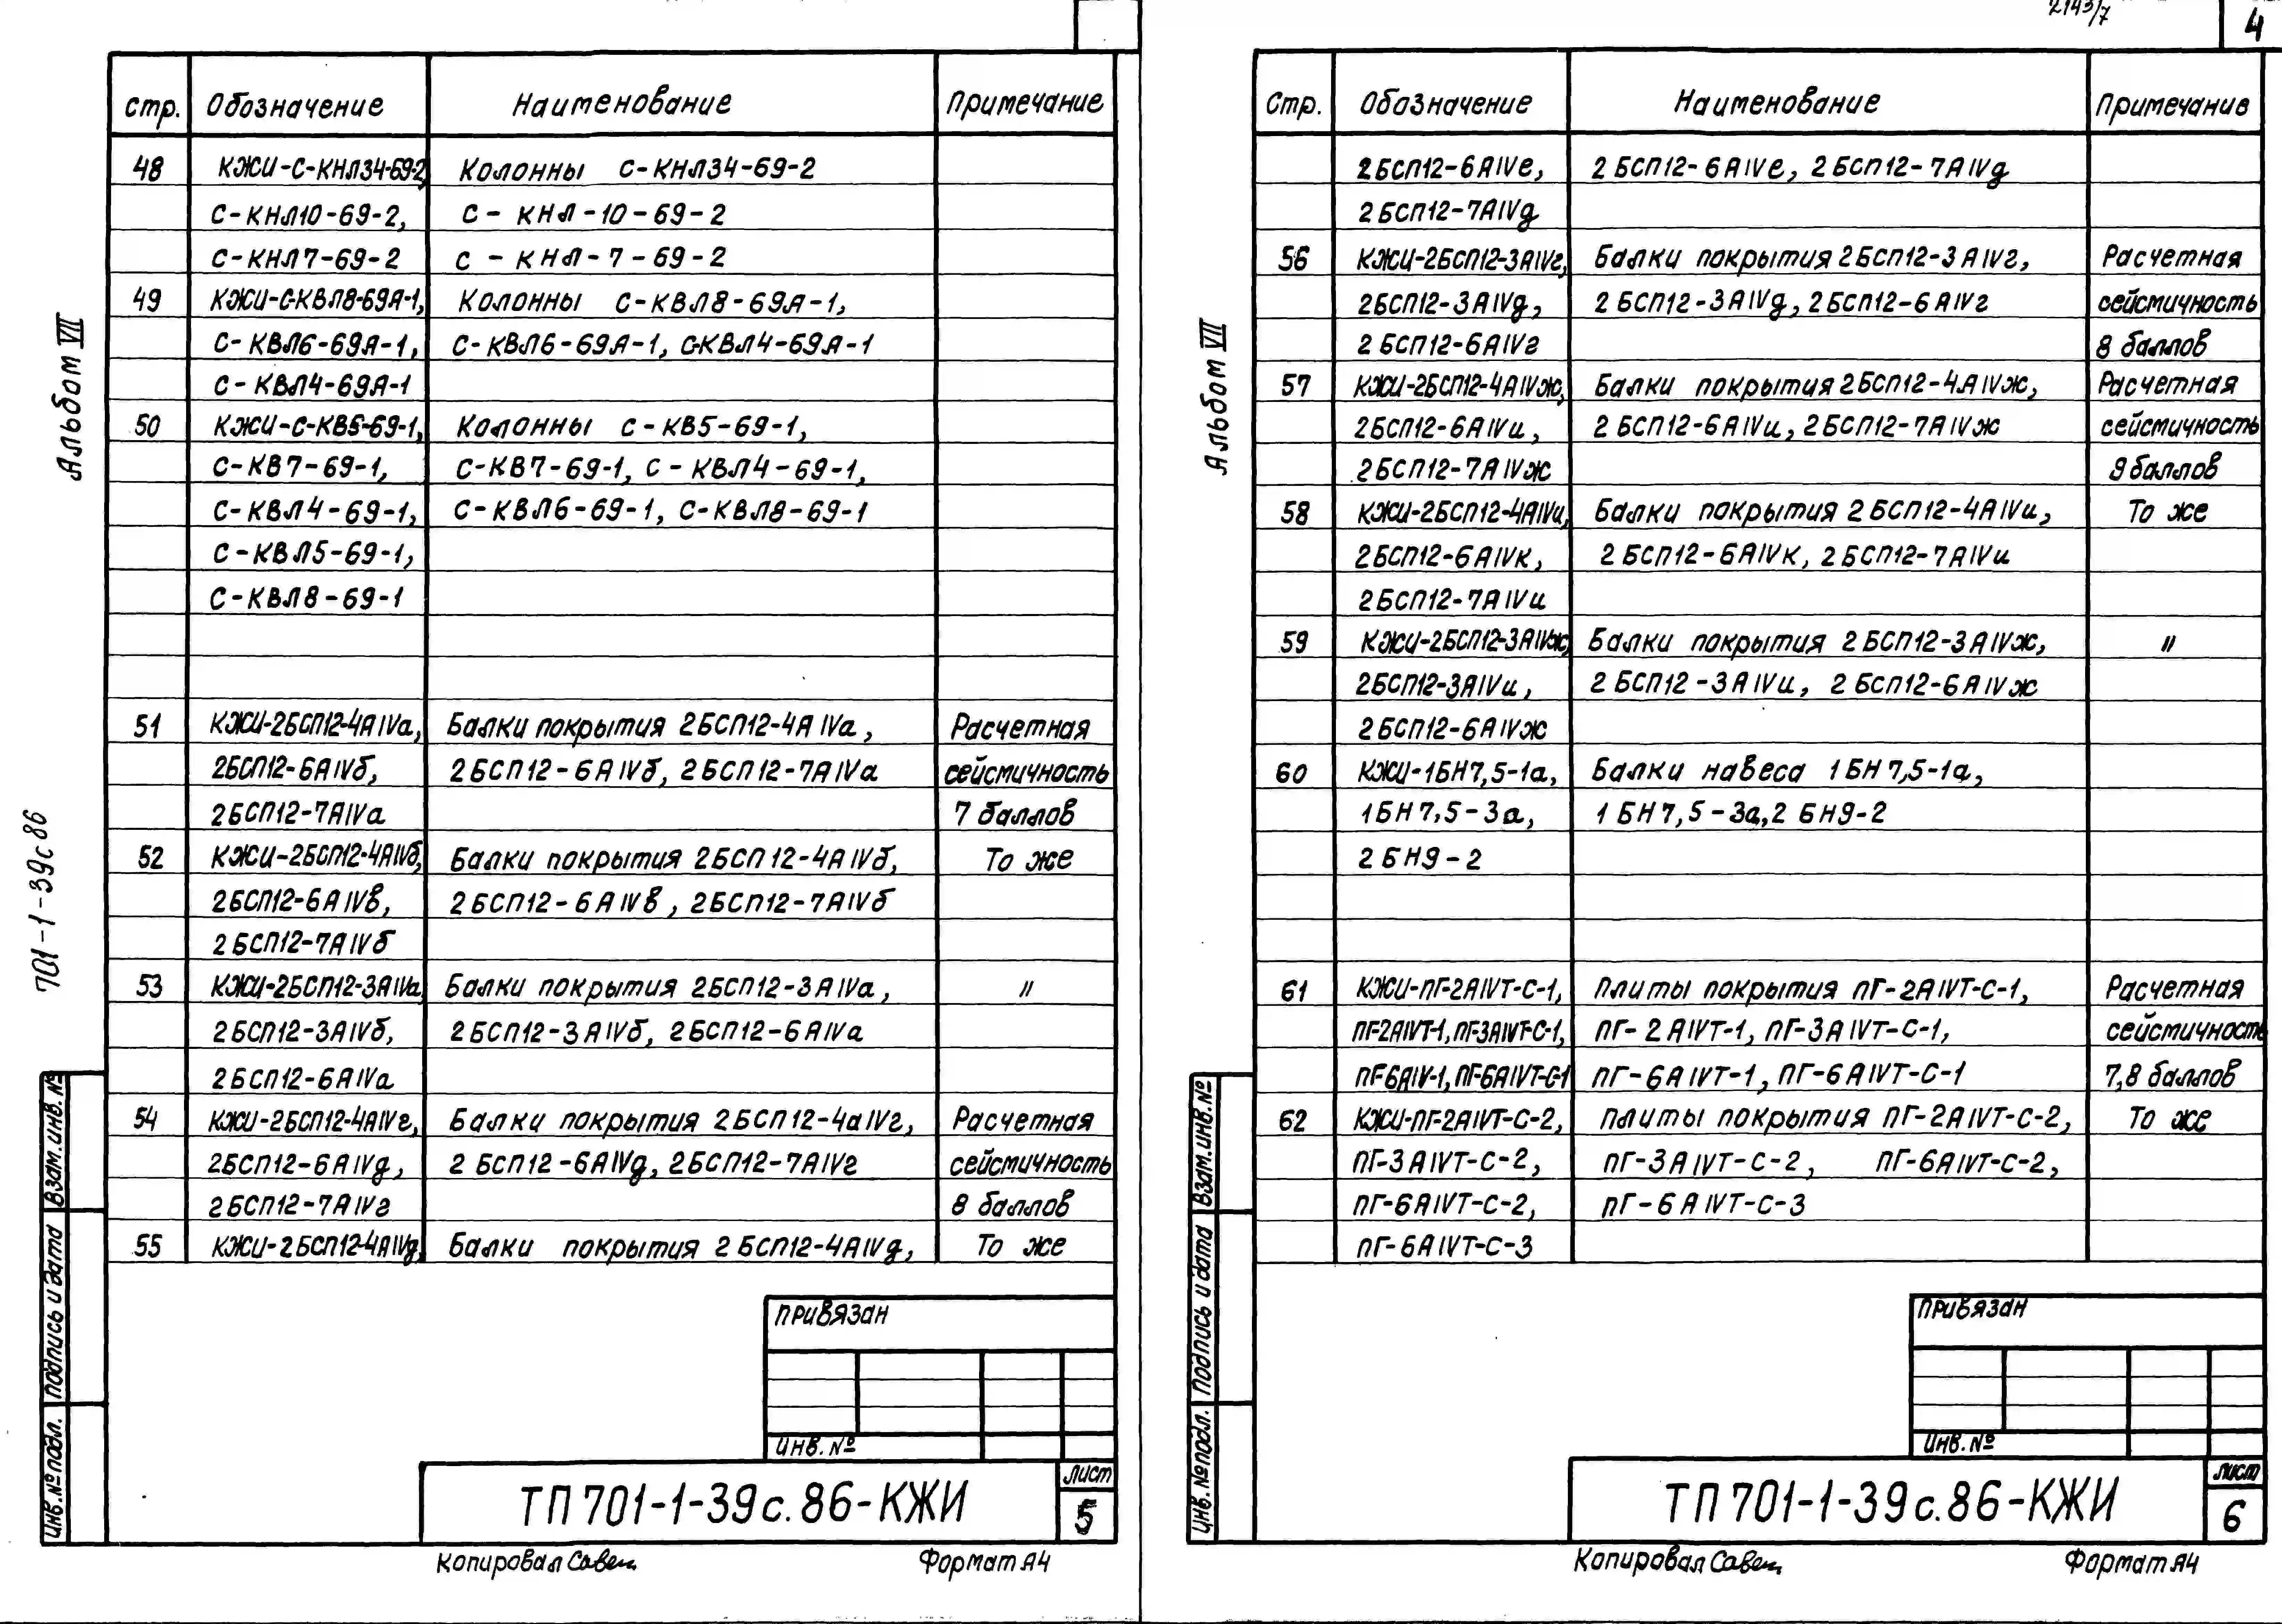 стр. Обозначение Наименование Примечание
48 КЖИ-С-КНЛ34-69-2, Колонны С-КНЛ34-69-2
С-КНЛ10-69-2, С-КНЛ-10-69-2
С-КНЛ7-69-2 С-КНЛ-7-69-2
49 КЖИ-С-КВЛ8-69А-1, Колонны С-КВЛ8-69А-1,
С-КВЛ6-69А-1, С-КВЛ6-69А-1, С-КВЛ4-69А-1
С-КВЛ4-69А-1
50 КЖИ-С-КВ5-69-1, Колонны С-КВ5-69-1,
С-КВ7-69-1, С-КВ7-69-1, С-КВЛ4-69-1,
С-КВЛ4-69-1, С-КВЛ6-69-1, С-КВЛ8-69-1
С-КВЛ5-69-1,
С-КВЛ8-69-1
51 КЖИ-2БСП12-4АIVа, Балки покрытия 2БСП12-4АIVа, Расчетная
2БСП12-6АIVб, 2БСП12-6АIVб, 2БСП12-7АIVа сейсмичность
2БСП12-7АIVа 7 баллов
52 КЖИ-2БСП12-4АIVб, Балки покрытия 2БСП12-4АIVб, То же
2БСП12-6АIVв, 2БСП12-6АIVв, 2БСП12-7АIVб
2БСП12-7АIVб
53 КЖИ-2БСП12-3АIVа, Балки покрытия 2БСП12-3АIVа, "
2БСП12-3АIVб, 2БСП12-3АIVб, 2БСП12-6АIVа
2БСП12-6АIVа
54 КЖИ-2БСП12-4АIVг, Балки покрытия 2БСП12-4аIVг, Расчетная
2БСП12-6АIVд, 2БСП12-6АIVд, 2БСП12-7АIVг сейсмичность
2БСП12-7АIVг 8 баллов
55 КЖИ-2БСП12-4АIVд, Балки покрытия 2БСП12-4АIVд, То же
Альбом VII
701-1-39с86
Взам.инв.№
Подпись и дата
Инв.№подл.
Привязан
Инв.№
ТП 701-1-39с.86-КЖИ
лист
5
Копировал Савен
Формат А4
2143/7
4
Стр. Обозначение Наименование Примечание
2БСП12-6АIVе, 2БСП12-6АIVе, 2БСП12-7АIVд
2БСП12-7АIVд
56 КЖИ-2БСП12-3АIVг, Балки покрытия 2БСП12-3АIVг, Расчетная
2БСП12-3АIVд, 2БСП12-3АIVд, 2БСП12-6АIVг сейсмичность
2БСП12-6АIVг 8 баллов
57 КЖИ-2БСП12-4АIVж, Балки покрытия 2БСП12-4АIVж, Расчетная
2БСП12-6АIVи, 2БСП12-6АIVи, 2БСП12-7АIVж сейсмичность
2БСП12-7АIVж 9 баллов
58 КЖИ-2БСП12-4АIVи, Балки покрытия 2БСП12-4АIVи, То же
2БСП12-6АIVк, 2БСП12-6АIVк, 2БСП12-7АIVи
2БСП12-7АIVи
59 КЖИ-2БСП12-3АIVж, Балки покрытия 2БСП12-3АIVж, "
2БСП12-3АIVи, 2БСП12-3АIVи, 2БСП12-6АIVж
2БСП12-6АIVж
60 КЖИ-1БН7,5-1а, Балки навеса 1БН7,5-1а,
1БН7,5-3а, 1БН7,5-3а, 2БН9-2
2БН9-2
61 КЖИ-ПГ-2АIVТ-С-1, Плиты покрытия ПГ-2АIVТ-С-1, Расчетная
ПГ-2АIVТ-1, ПГ-3АIVТ-С-1, ПГ-2АIVТ-1, ПГ-3АIVТ-С-1, сейсмичность
ПГ-6АIV-1, ПГ-6АIVТ-С-1 ПГ-6АIVТ-1, ПГ-6АIVТ-С-1 7,8 баллов
62 КЖИ-ПГ-2АIVТ-С-2, Плиты покрытия ПГ-2АIVТ-С-2, То же
ПГ-3АIVТ-С-2, ПГ-3АIVТ-С-2, ПГ-6АIVТ-С-2,
ПГ-6АIVТ-С-2, ПГ-6АIVТ-С-3
ПГ-6АIVТ-С-3
Альбом VII
Взам.инв.№
Подпись и дата
Инв.№подл.
Привязан
Инв.№
ТП 701-1-39с.86-КЖИ
лист
6
Копировал Савен
Формат А4